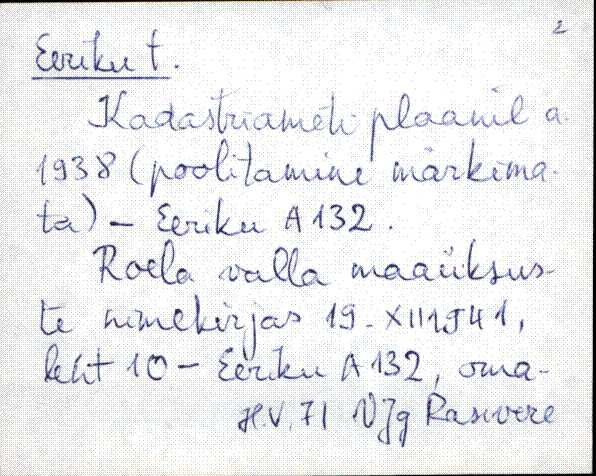 2
Eeriku t.
Kadastriameti plaanil a.
1938 (poolitamine märkima-
ta) - Eeriku A 132.
Roela valla maaüksus-
te nimekirjas 19. XII 1941,
leht 10 - Eeriku A 132, oma-
H.V. 71 VJg Rasivere